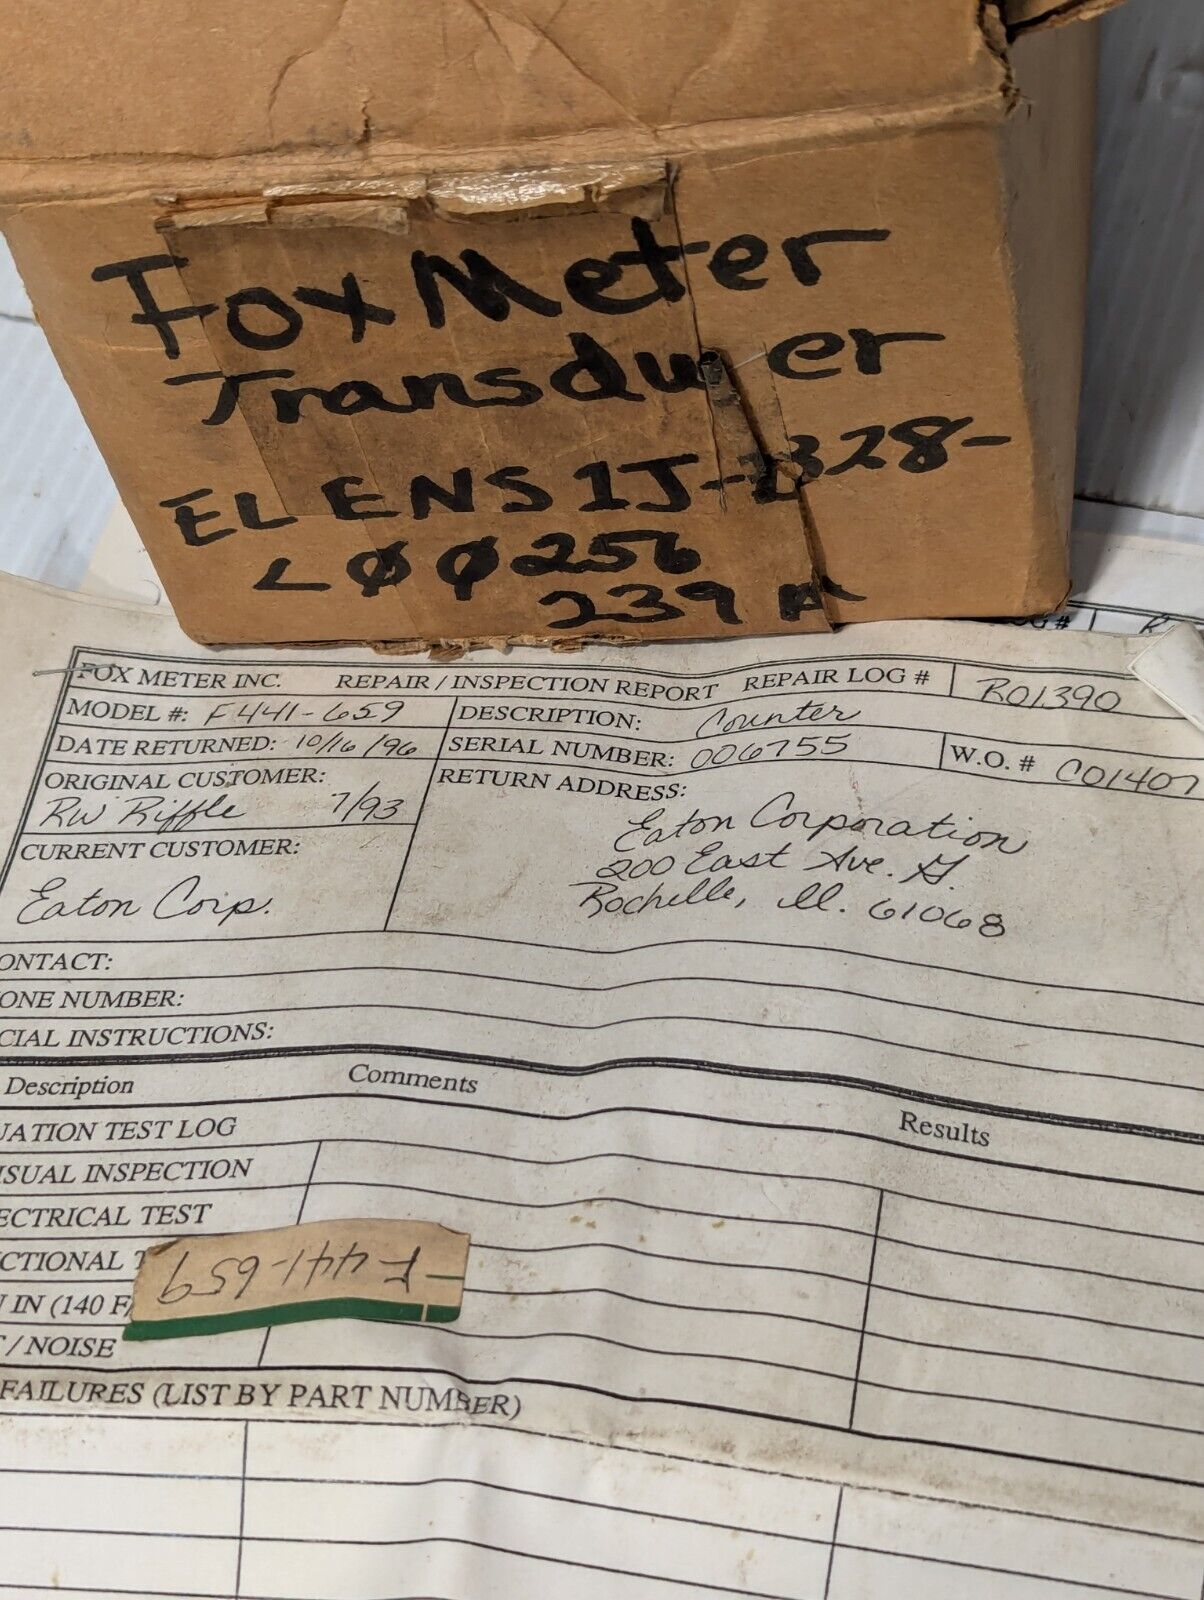 Fox Meter
Transducer
ELENS1J-B28-
LØØ256
239A
FOX METER INC. REPAIR / INSPECTION REPORT REPAIR LOG # R01390
MODEL #: F441-659 DESCRIPTION: Counter
DATE RETURNED: 10/16/96 SERIAL NUMBER: 006755 W.O. # C01407
ORIGINAL CUSTOMER: RETURN ADDRESS:
RW Riffle 7/93 Eaton Corporation
CURRENT CUSTOMER: 200 East Ave. G.
Eaton Corp. Rochelle, Ill. 61068
ONTACT:
ONE NUMBER:
CIAL INSTRUCTIONS:
Description Comments Results
UATION TEST LOG
ISUAL INSPECTION
ECTRICAL TEST
CTIONAL T
F-441-659
IN (140 F
/ NOISE
FAILURES (LIST BY PART NUMBER)